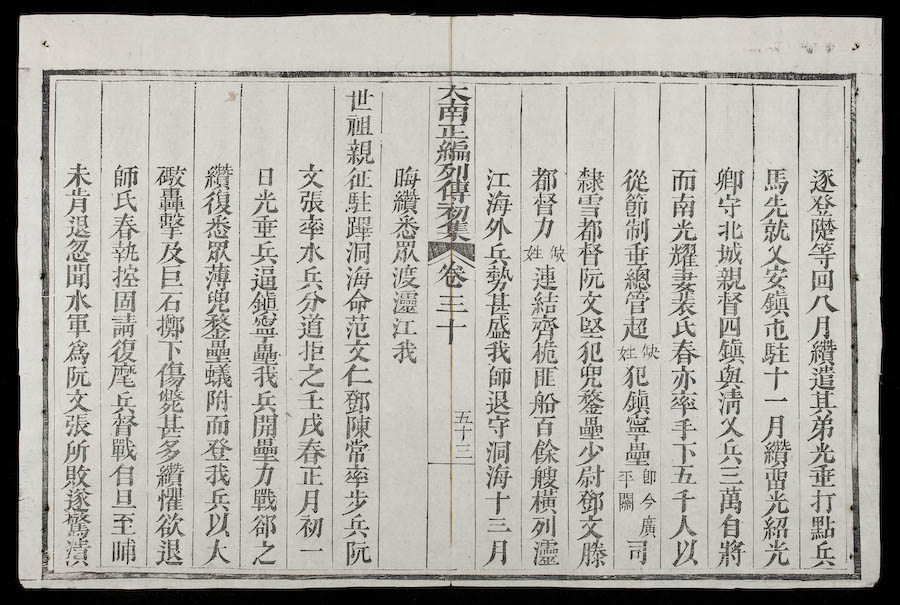 逐登隨等回八月纘遣其弟光垂打點兵
馬先就乂安鎮屯駐十一月纘畱光紹光
卿守北城親督四鎮與淸乂兵三萬自將
而南光耀妻裴氏春亦率手下五千人以
從節制垂總管超缺姓犯鎮寧壘卽今廣平關司
隸雪都督阮文堅犯兜鍪壘少尉鄧文滕
都督力缺姓連結齊桅匪船百餘艘橫列𤅷
江海外兵勢甚盛我師退守洞海十三月
大南正編列傳初集 卷三十 五十三
晦纘悉眾渡𤅷江我
世祖親征駐蹕洞海命范文仁鄧陳常率步兵阮
文張率水兵分道拒之壬戌春正月初一
日光垂兵逼鎮寧壘我兵開壘力戰郤之
纘復悉眾薄兜鍪壘蟻附而登我兵以大
礮轟擊及巨石擲下傷斃甚多纘懼欲退
師氏春執控固請復麾兵督戰自旦至晡
未肯退忽聞水軍爲阮文張所敗遂驚潰